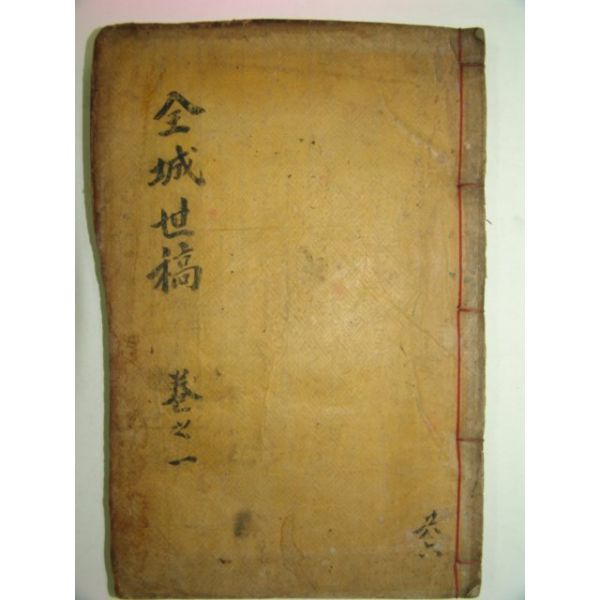 全城世稿
卷之一
共六